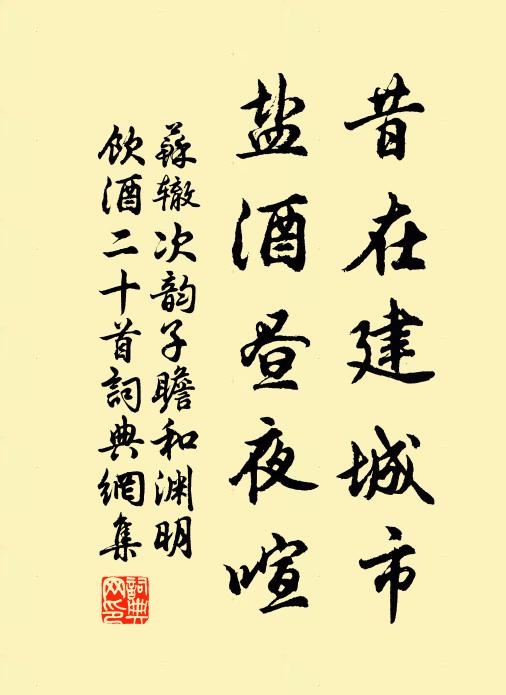 昔在建城市
盐酒昼夜喧
蘇辙次韵子瞻和渊明
飲酒二十首詞典網集
詞典
网印